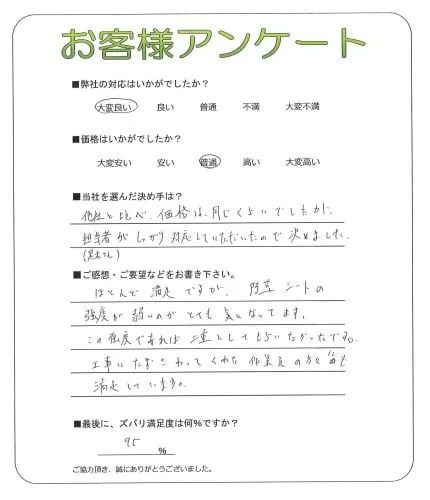 お客様アンケート
■弊社の対応はいかがでしたか？
大変良い 良い 普通 不満 大変不満
■価格はいかがでしたか？
大変安い 安い 普通 高い 大変高い
■当社を選んだ決め手は？
他社と比べ、価格は、同じくらいでしたが、
担当者がしっかり対応していただいたので決めました。
■ご感想・ご要望などをお書き下さい。
ほとんど満足ですが、防草シートの
強度が弱いのがとても気になってます。
この強度であれば二重としてもらいたかったです。
工事にたずさわってくれた作業員の方々
満足しています。
■最後に、ズバリ満足度は何%ですか？
95
%
ご協力頂き、誠にありがとうございました。